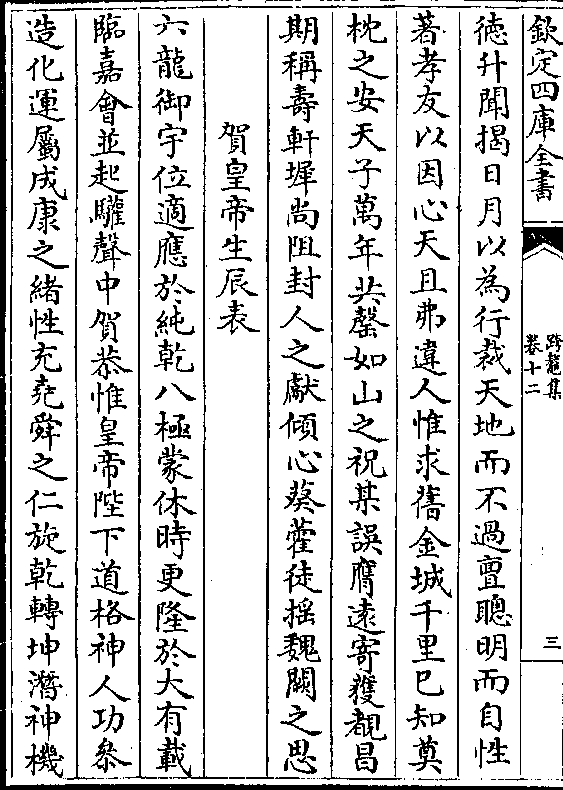 欽定四庫全書
跨鼇集
卷十二
三
德升聞揭日月以為行裁天地而不過亶聰明而自性
著孝友以因心天且弗違人惟求舊金城千里已知奠
枕之安天子萬年共罄如山之祝某誤膺遠寄獲覩昌
期稱壽軒墀尚阻封人之獻傾心葵藿徒摇魏闕之思
賀皇帝生辰表
六龍御宇位適應於純乾八極蒙休時更隆於大有載
臨嘉會並起驩聲中賀恭惟皇帝陛下道格神人功叅
造化運屬成康之緒性充堯舜之仁旋乾轉坤濳神機